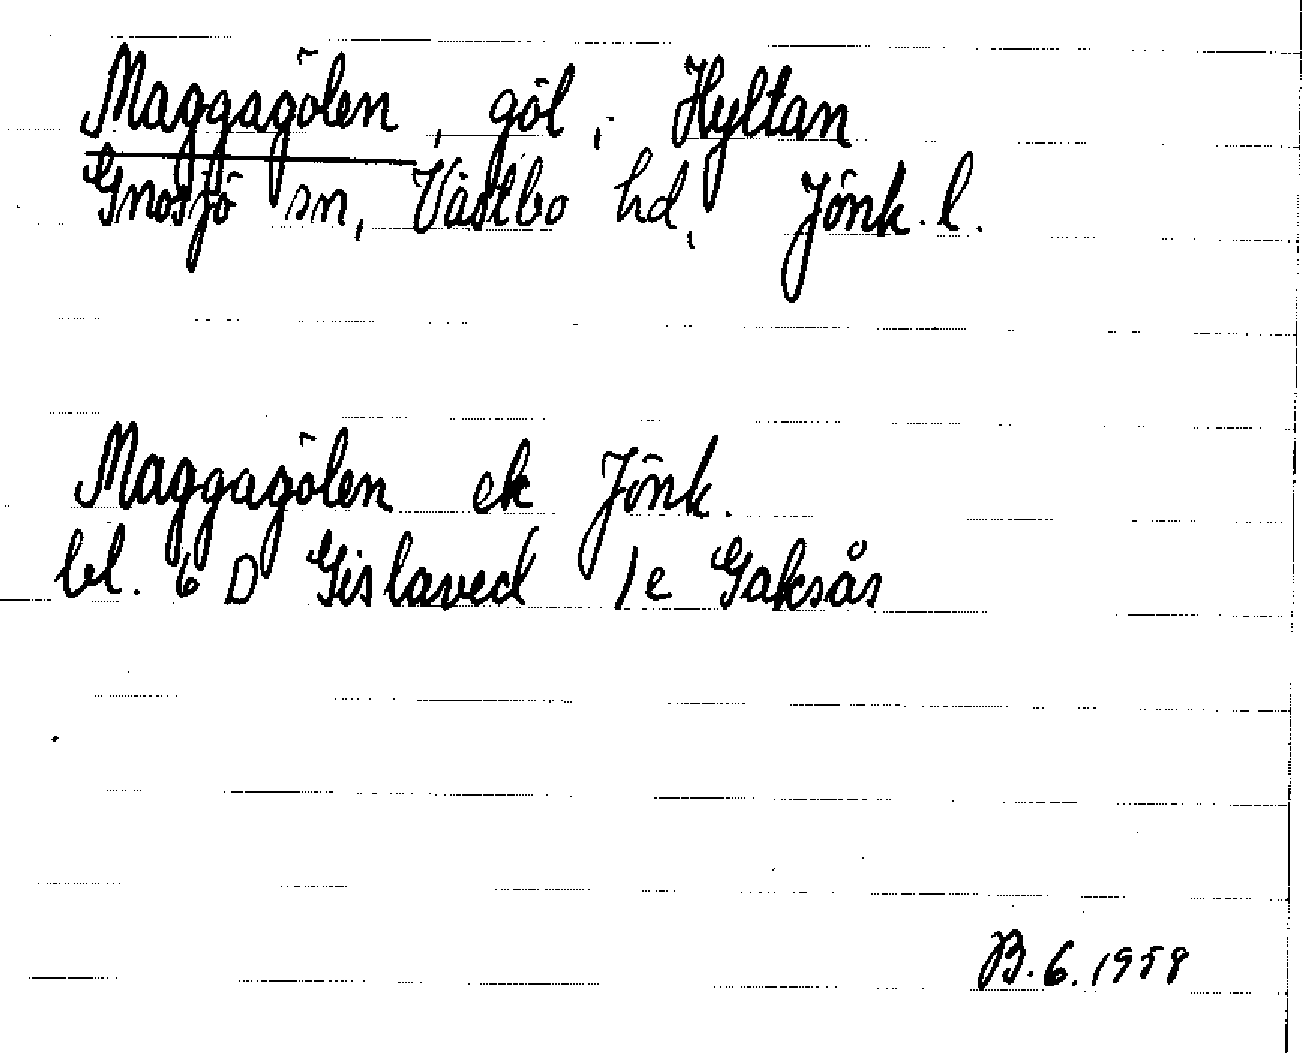 Maggagölen, göl, Hyltan
Gnosjö sn, Västbo hd, Jönk. l.
Maggagölen ek Jönk.
bl. 6 D Gislaved 1e Gaksås
B. 6. 1958